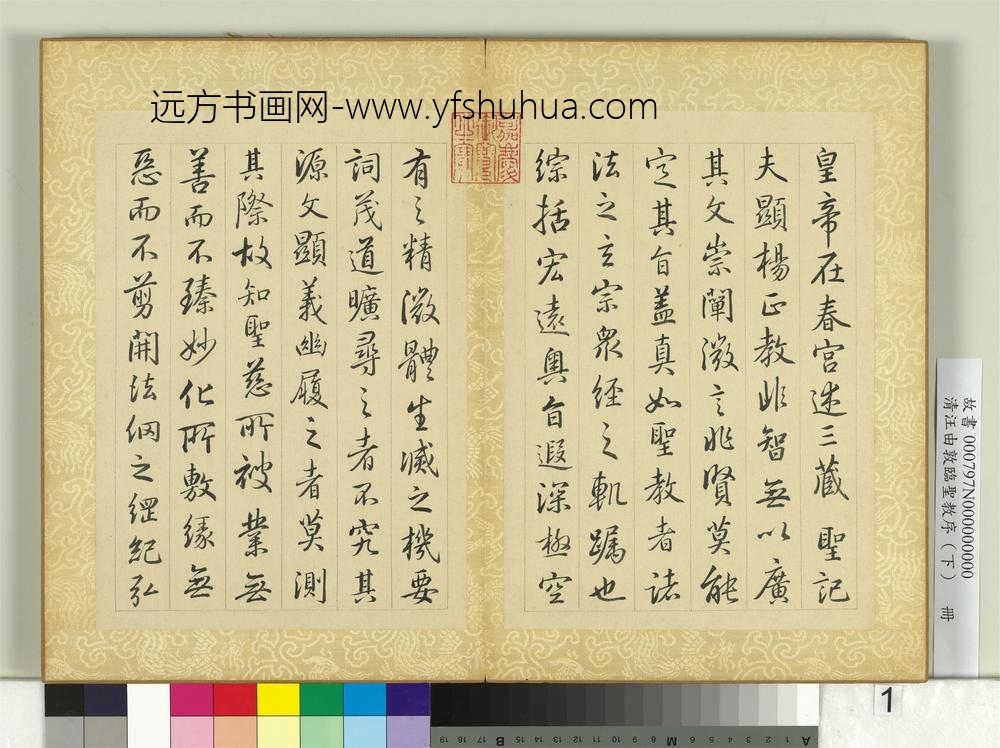 远方书画网-www.yfshuhua.com
嘉慶御覽之寶
皇帝在春宮述三藏 聖記
夫顯楊正教非智無以廣
其文崇闡微言非賢莫能
定其旨蓋真如聖教者諸
法之玄宗眾經之軌躅也
綜括宏遠奧旨遐深極空
有之精微體生滅之機要
詞茂道曠尋之者不究其
源文顯義幽履之者莫測
其際故知聖慈所被業無
善而不臻妙化所敷緣無
惡而不剪開法網之綱紀弘
故書 000797N000000000
清汪由敦臨聖教序（下） 冊
1
A 1 2 3 4 5 6 7 8 M 9 10 11 12 13 14 15 B 16 17 18 19